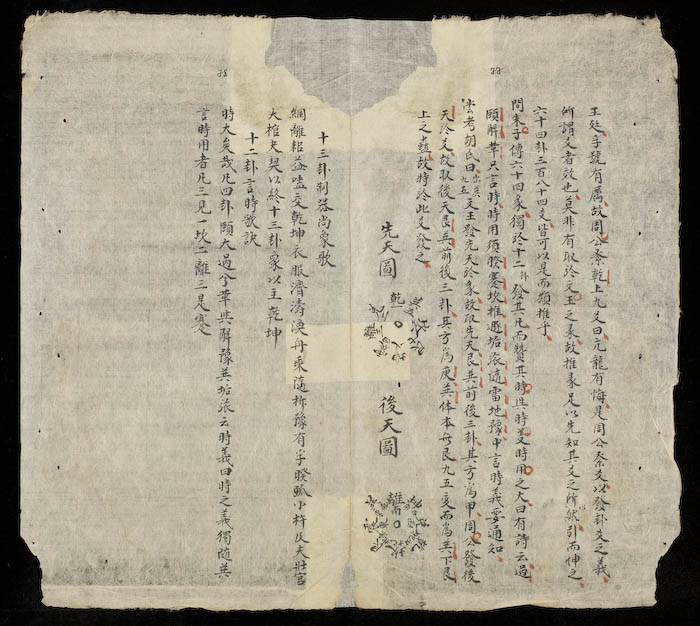 王廷孚號有厲故周公乾上九爻曰亢龍有悔是周公爻以發卦爻之義
所謂爻者效也莫非有取於文王之彖故推彖足以先知其爻之所然引而伸之
六十四卦三百八十四爻皆可以是而類推乎
問朱子傳六十四彖獨於十二卦發其凡而贊其時與時義時用之大曰有詩云過
頤解革只言時時用須睽蹇坎推遯姤旅隨雷地豫中言時義要通知
考胡氏曰出巽九五文王發先天於彖故取先天艮巽前後三卦其方為甲周公發後
天於爻故取後天艮巽前後三卦其方為庚巽体本毋艮九五変而為巽下艮
上之蠱故特於此爻發之
先天圖
乾
後天圖
離
十三卦制器尚象歌
網離耜益嗑交乾坤衣服濟渙舟乘隨柝豫有字睽弧小杵大壯宮
大棺夬契以終十三卦象以主乾坤
十二卦言時歌訣
時大矣哉凡四卦頤大過兮革與解豫其姤旅云時義曰時之義獨隨其
言時用者凡三見一坎二離三是蹇